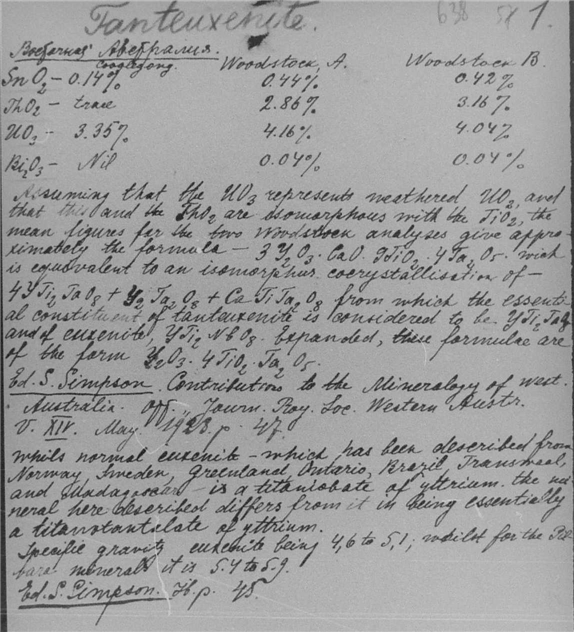 Tanteuxenite. 638 58 1.
Восточная Австралия.
Cooglegong. Woodstock, A. Woodstock B.
SnO2 – 0.14% 0.44% 0.42%
ThO2 – trace 2.86% 3.16%
UO3 – 3.35% 4.16% 4.04%
Bi2O3 – Nil 0.04% 0.04%
Assuming that the UO3 represents weathered UO2, and
that this and the ThO2 are isomorphous with the TiO2, the
mean figures for the two Woodstock analyses give appro-
ximately the formula – 3 Y2O3. CaO. 9TiO2. 4Ta2O5. wich
is equivalent to an isomorphus cocrystallisation of –
4YTi2TaO8 + Y2Ta2O8 + CaTiTa2O8 from which the essenti-
al constituent of tanteuxenite is considered to be YTi2TaO8
and of euxenite, YTi2NbO8. Expanded, these formulae are
of the form Y2O3. 4TiO2. Ta2O5.
Ed. S. Simpson. Contributions to the Mineralogy of West.
Australia. Journ. Roy. Soc. Western Austr.
V. XIV. May 1928. p. 47.
Whils normal euxenite – which has been described from
Norway, Sweden, Greenland, Ontario, Brazil, Transvaal,
and Madagascar – is a titaniobate of yttrium. the mi-
neral here described differs from it in being essentially
a titanotantalate of yttrium.
Specific gravity euxenite being 4,6 to 5,1; whilst for the Pil-
bara minerals it is 5.4 to 5.9.
Ed. S. Simpson. Ib. p. 45.